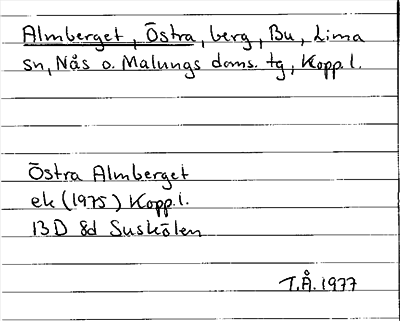 Almberget, Östra, berg, Bu, Lima
sn, Nås o. Malungs doms. tg, Kopp. l.
Östra Almberget
ek (1975) Kopp. l.
13D 8d Suskölen
T.Å. 1977